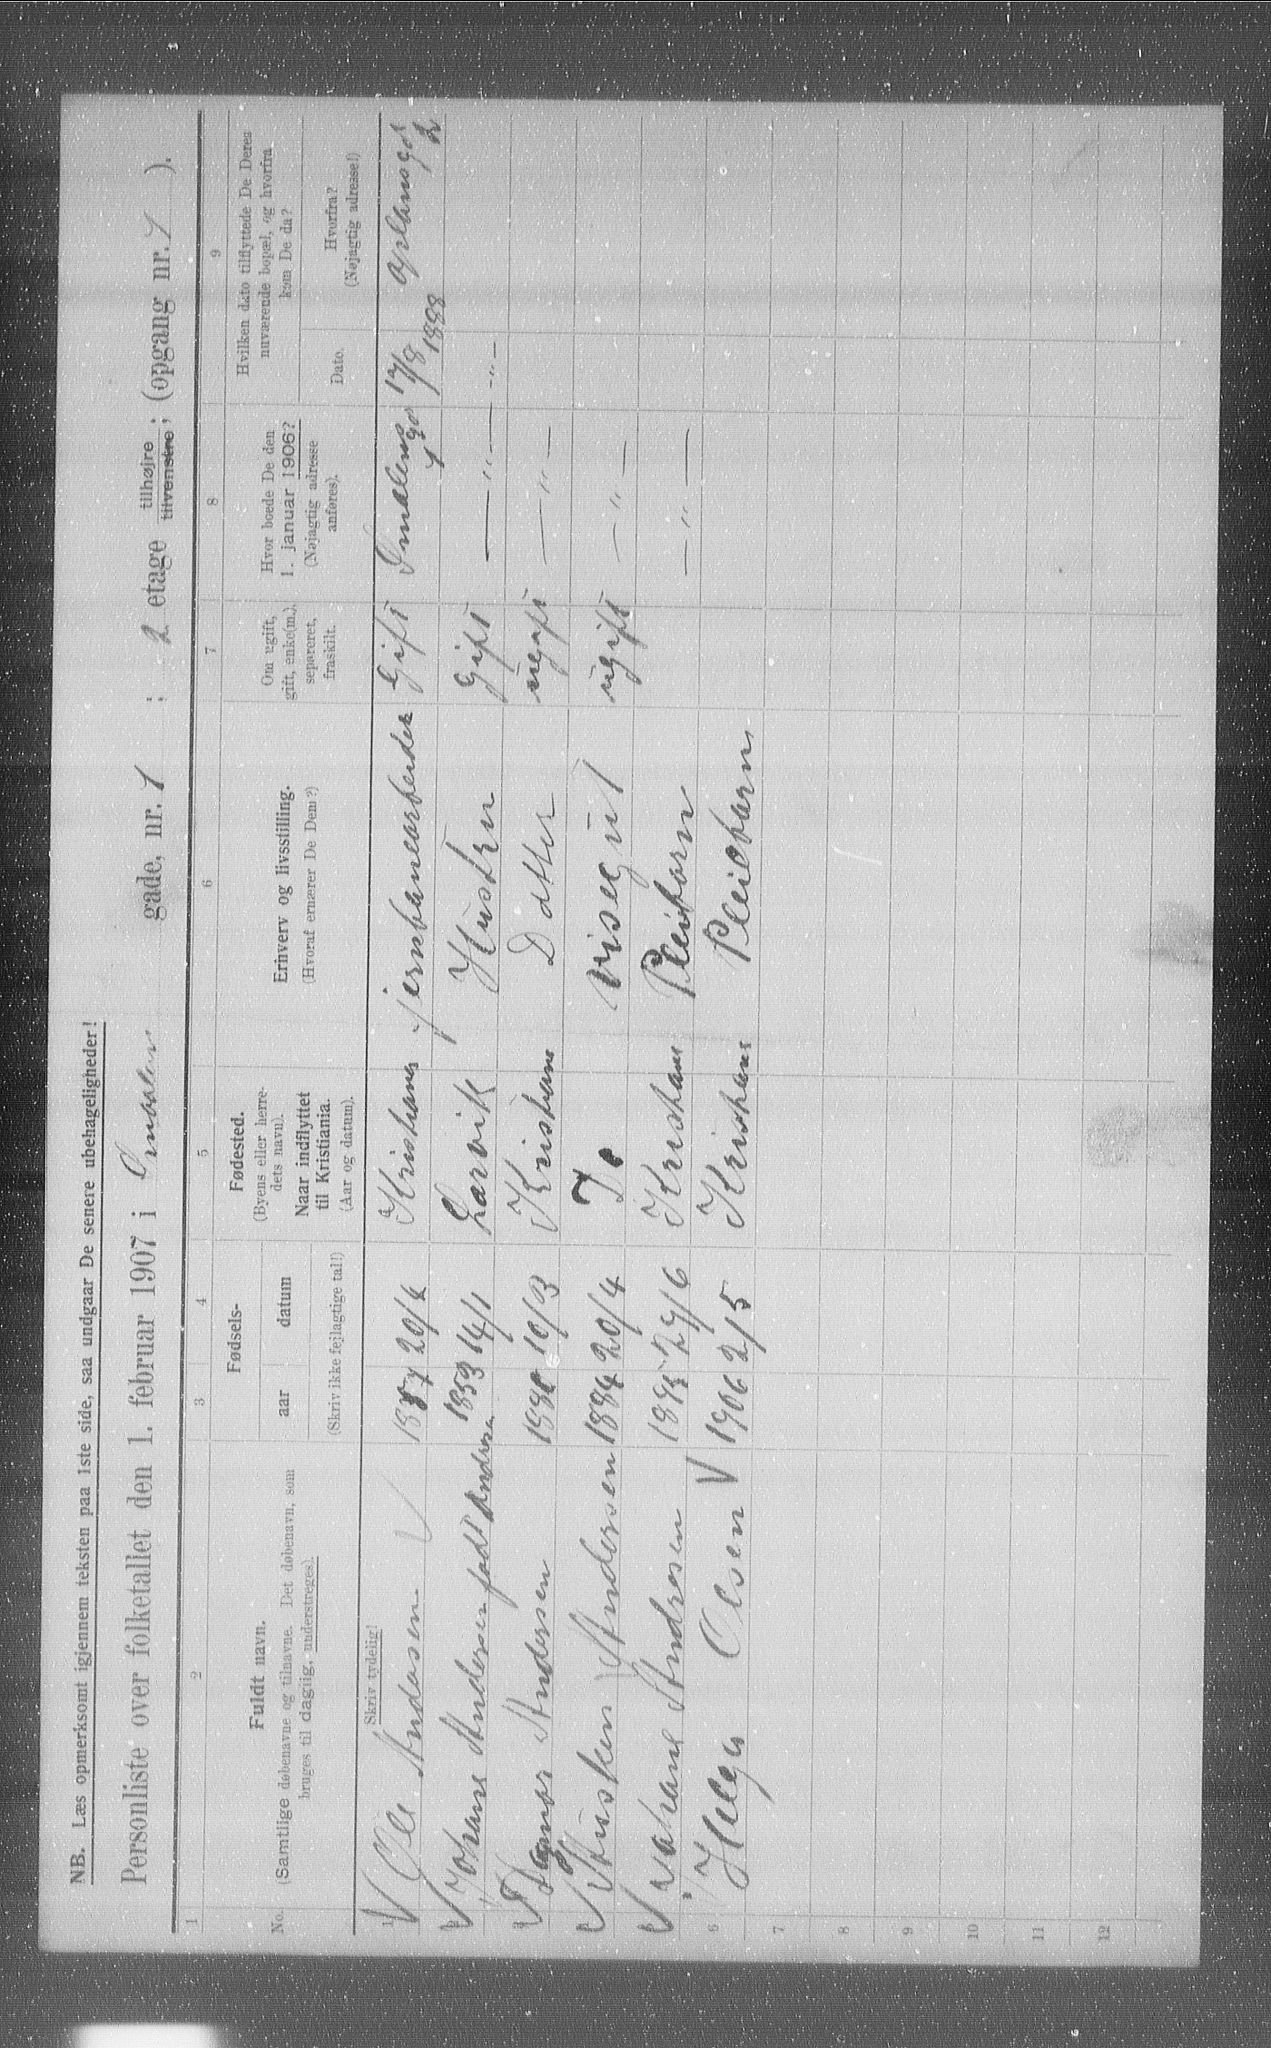 NB. Læs opmerksomt igjennem teksten paa 1ste side, saa undgaar De senere ubehageligheder!
Personliste over folketallet den 1. februar 1907 i Smaalen gade, nr. 1 ; 2 etage tilhøjre tilvenstre ; (opgang nr. 1 ).
1 2 3 4 5 6 7 8 9
No.
Fuldt navn.
(Samtlige døbenavne og tilnavne. Det døbenavn, som
bruges til daglig, understreges).
Fødsels-
aar datum
(Skriv ikke fejlagtige tal!)
Fødested.
(Byens eller herre-
dets navn).
Naar indflyttet
til Kristiania.
(Aar og datum).
Erhverv og livsstilling.
(Hvoraf ernærer De Dem?)
Om ugift,
gift, enke(m.),
separeret,
fraskilt.
Hvor boede De den
1. januar 1906?
(Nøjagtig adresse
anføres).
Hvilken dato tilflyttede De Deres
nuværende bopæl, og hvorfra
kom De da?
Dato.
Hvorfra?
(Nøjagtig adresse!)
Skriv tydelig!
1 Ole Andersen 1857 20/4 Kristiania jernbanearbeider Gift Smalensgd 1 17/8 1888 Oplansgd 2
Johane Andersen født Andresen 1853 14/1 Larvik Hustru Gift — " — — " —
Dagmar Andersen 1880 10/3 Kristiania Datter ugift — " —
Andersen 1884 20/4 Do visergut ugift — " —
Andresen 1895 29/6 Kristiania Pleiebarn — " —
6 Helga Olsen 1906 2/5 Kristiania Pleiebarn
7
8
9
10
11
12